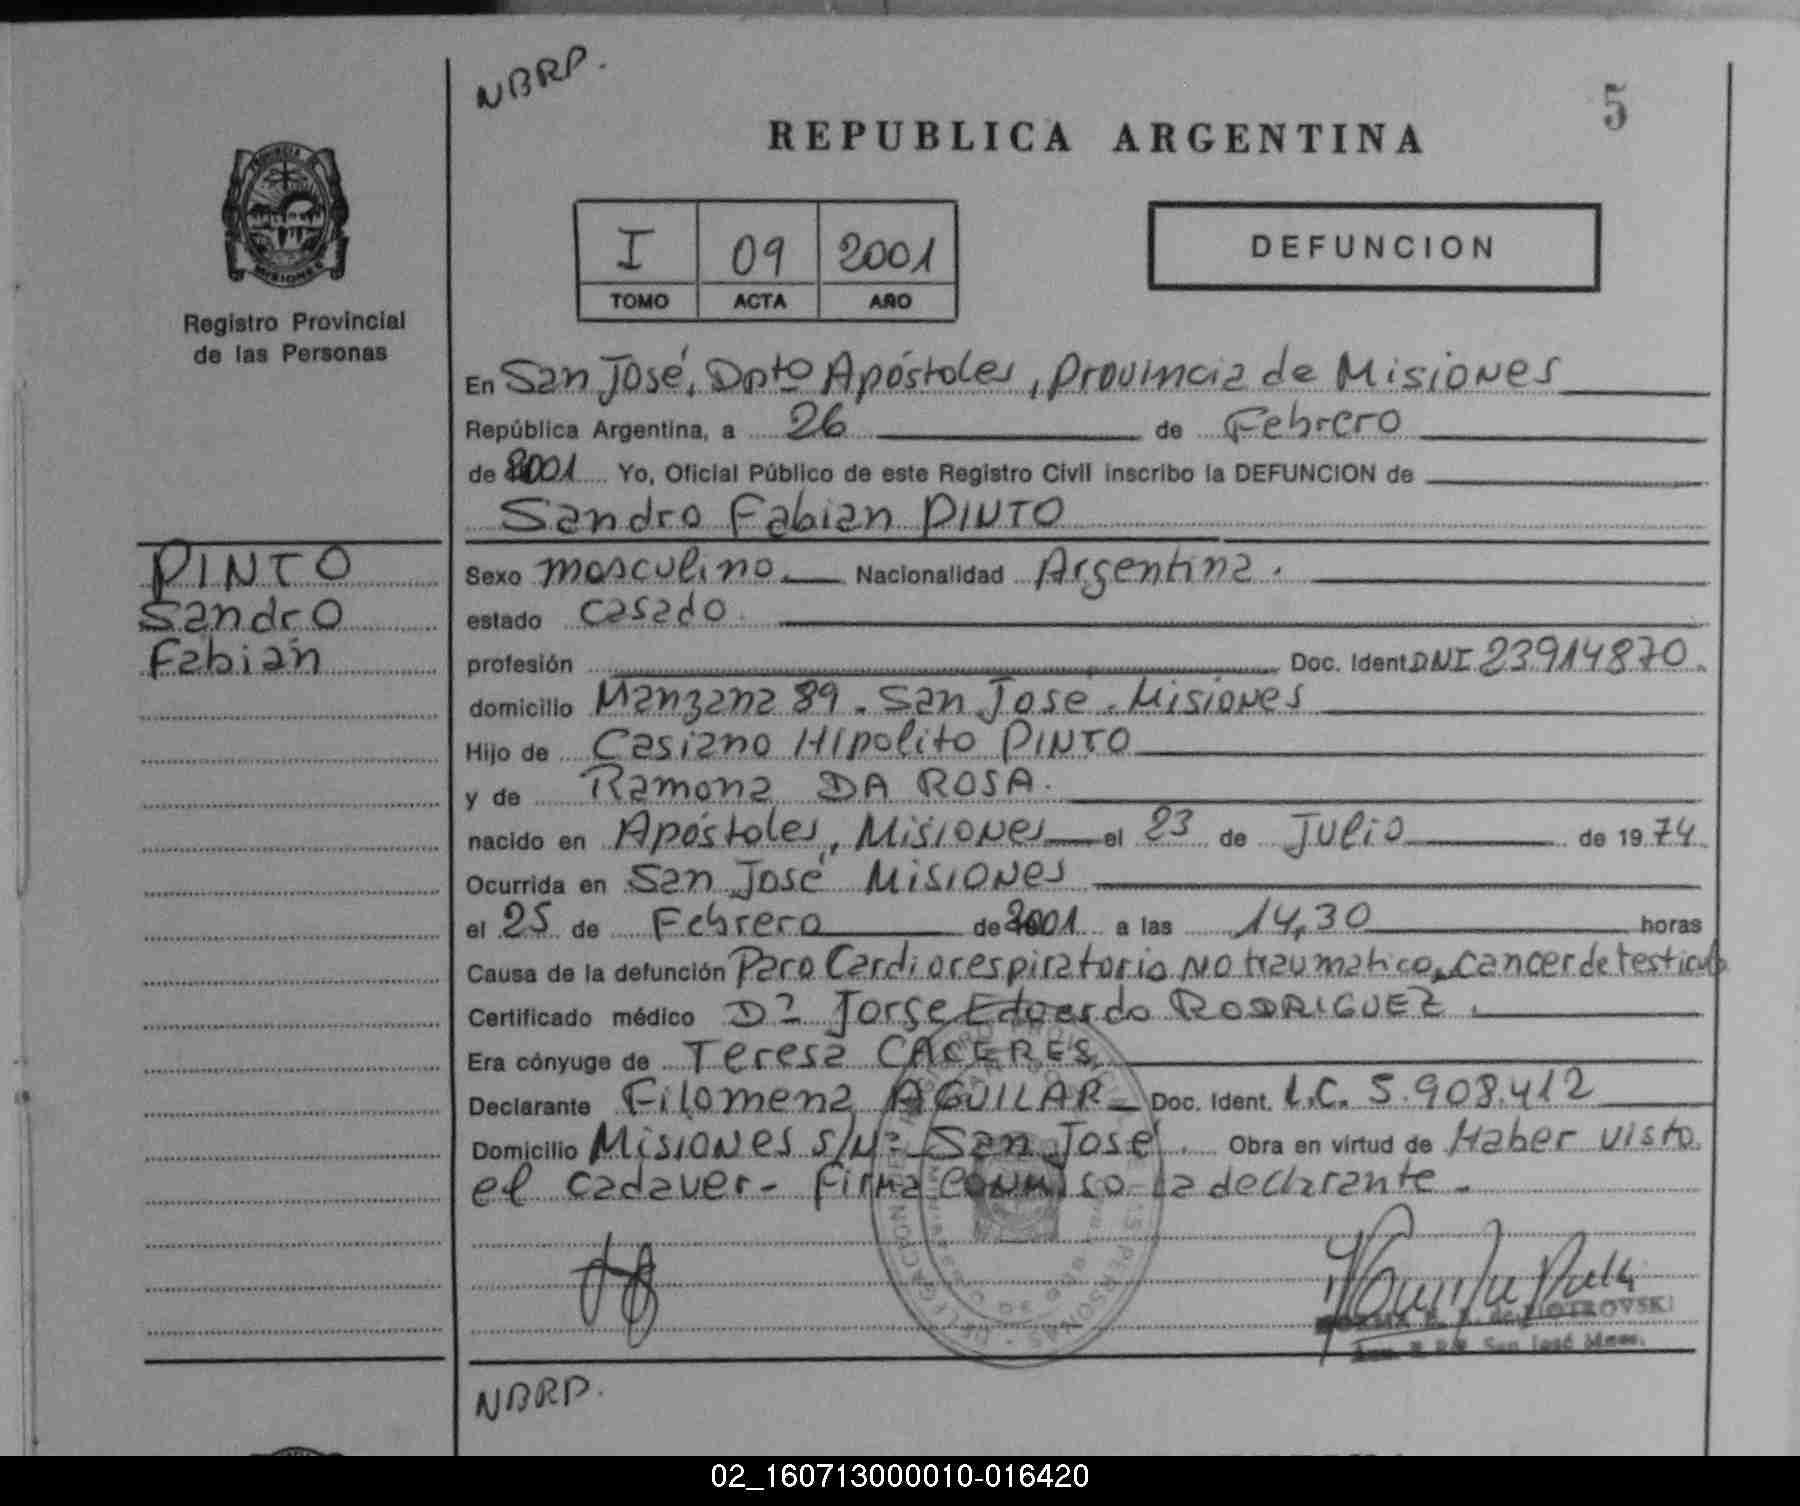 NBRP.
5
REPUBLICA ARGENTINA
PROVINCIA DE
MISIONES
Registro Provincial
de las Personas
I 09 2001
TOMO ACTA AÑO
DEFUNCION
En San José, Dpto Apóstoles, Provincia de Misiones
República Argentina, a 26 de Febrero
de 2001 Yo, Oficial Público de este Registro Civil inscribo la DEFUNCION de
Sandro Fabian PINTO
PINTO
Sandro
Fabián
Sexo masculino. Nacionalidad Argentina.
estado casado.
profesión Doc. Ident. DNI 23914870.
domicilio Manzana 89. San José. Misiones
Hijo de Casiano Hipolito PINTO
y de Ramona DA ROSA.
nacido en Apóstoles, Misiones el 23 de Julio de 1974.
Ocurrida en San José Misiones
el 25 de Febrero de 2001 a las 14,30 horas
Causa de la defunción Paro Cardiorespiratorio No traumatico, cancer de testiculo
Certificado médico Dr Jorge Eduardo RODRIGUEZ.
Era cónyuge de Teresa CACERES
Declarante Filomena AGUILAR Doc. Ident. L.C. 5.908.412
Domicilio Misiones s/Nº San José. Obra en virtud de Haber visto
el cadaver- Firma conmigo la declarante.
de PIOTROVSKI
San José Mnes.
NBRP.
02_160713000010-016420